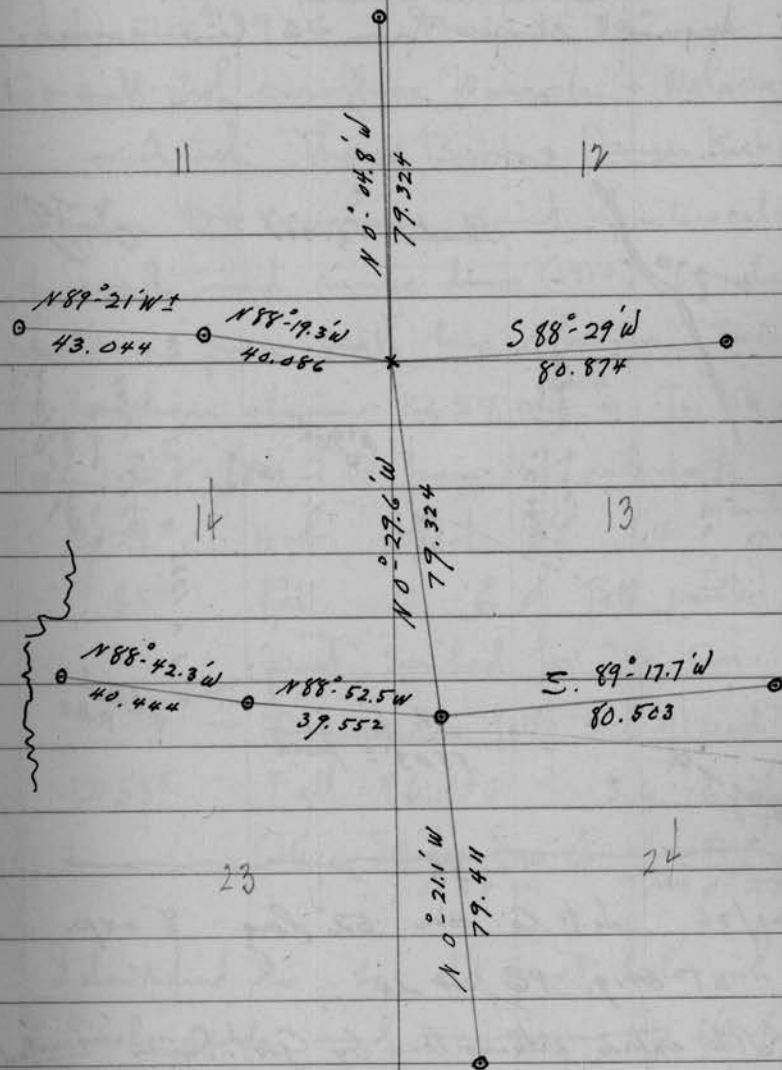 11
12
N 0°-04.8' W
79.324
N 89°-21' W ±
43.044
N 88°-19.3' W
40.086
S 88°-29' W
80.874
14
13
N 0°-29.6' W
79.324
N 88°-42.3' W
40.444
N 88°-52.5 W
39.552
S. 89°-17.7' W
80.503
23
24
N 0°-21.1' W
79.411